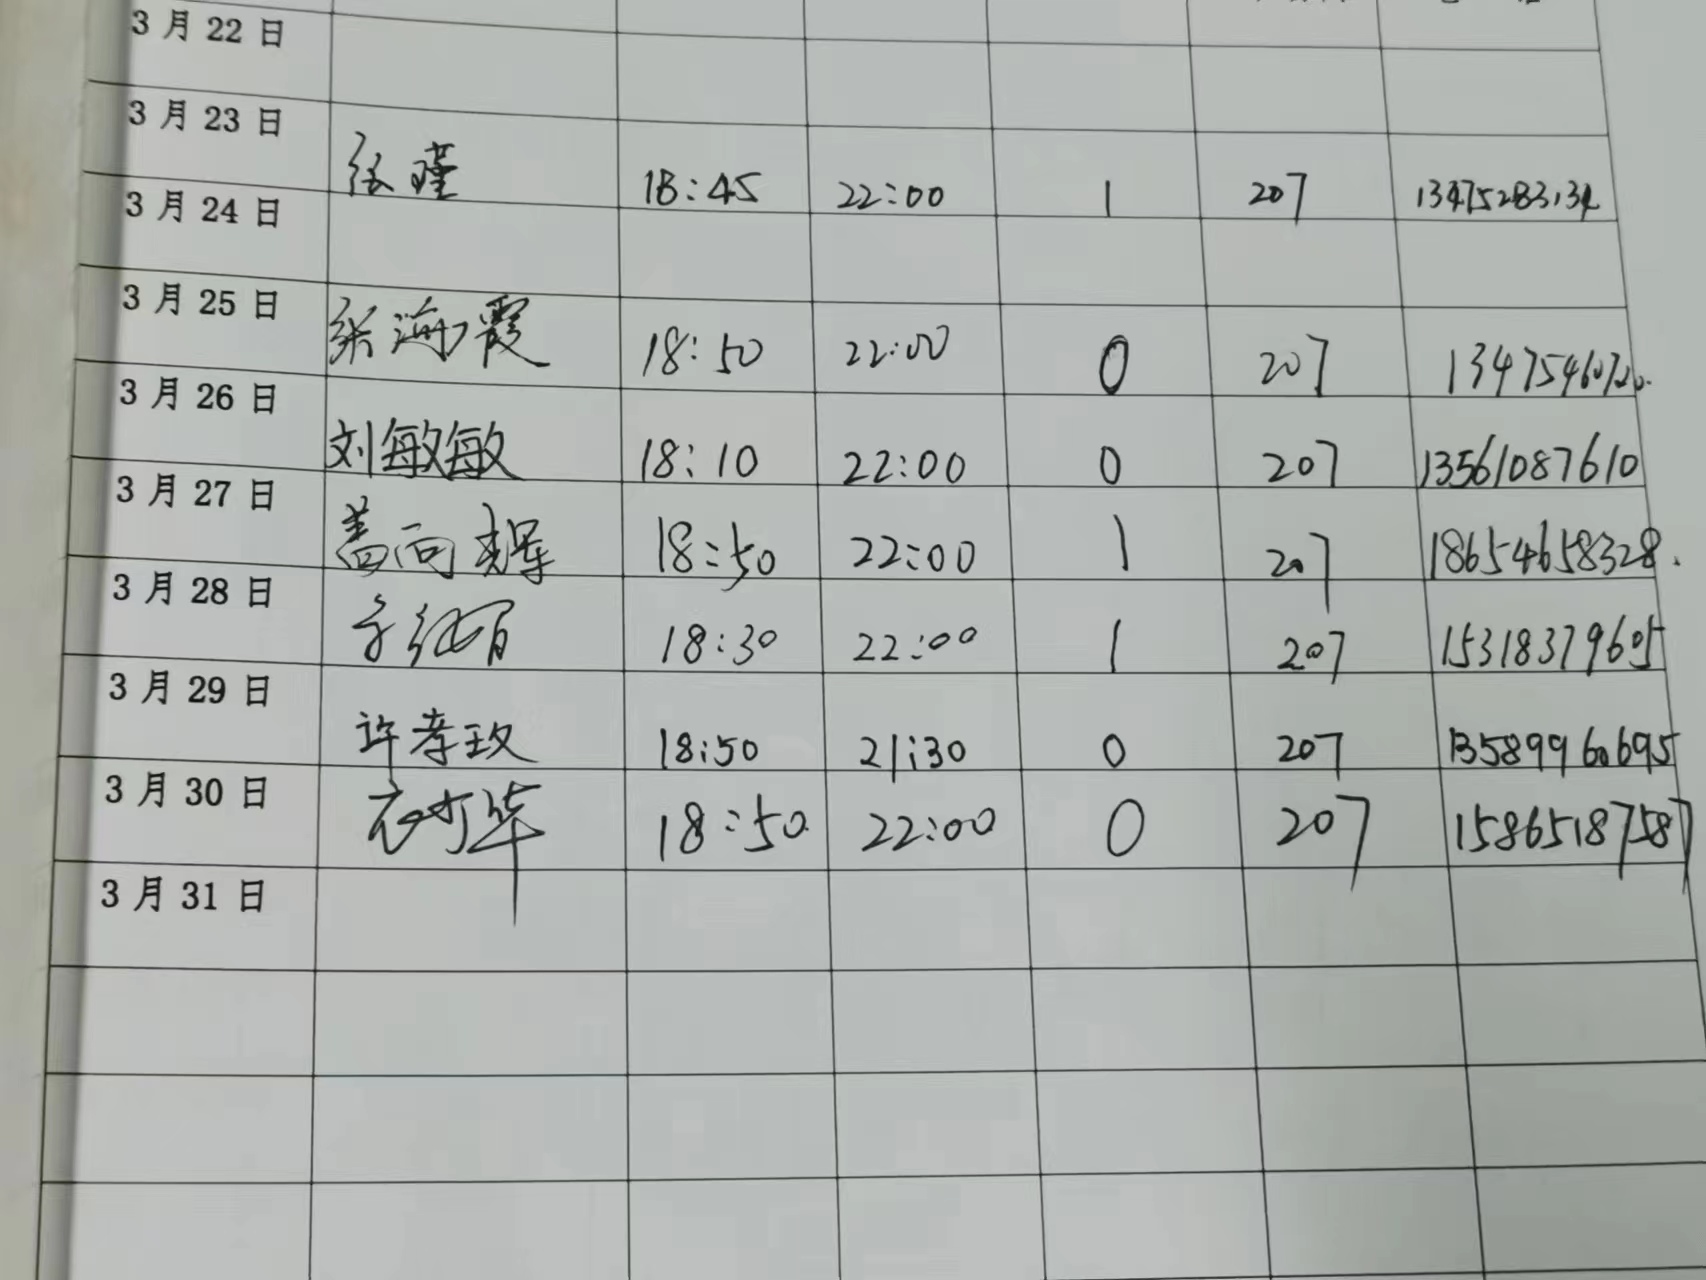 3 月 22 日
3 月 23 日 张瑾 18:45 22:00 1 207 13475283134
3 月 24 日
3 月 25 日 张海霞 18:50 22:00 0 207
3 月 26 日 刘敏敏 18:10 22:00 0 207 13561087610
3 月 27 日 盖向辉 18:50 22:00 1 207 18654658328.
3 月 28 日 18:30 22:00 1 207 15318379605
3 月 29 日 许孝玫 18:50 21:30 0 207 13589960695
3 月 30 日 衣才华 18:50 22:00 0 207 15865187587
3 月 31 日